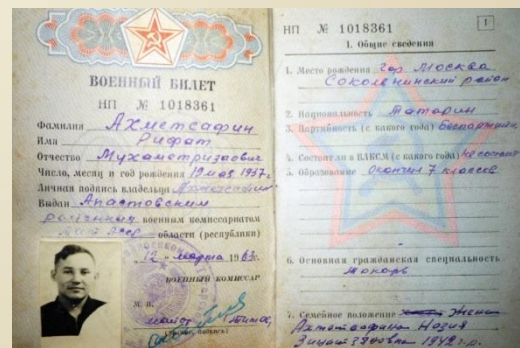 ВОЕННЫЙ БИЛЕТ
НП № 1018361
Фамилия Ахметсафин
Имя Рифат
Отчество Мухаметризаович
Число, месяц и год рождения 19 мая 1937 г.
Личная подпись владельца
Выдан Апастовским
районным военным комиссариатом
области (республики)
„12“ марта 1963 г.
ВОЕННЫЙ КОМИССАР
М. П.
майор
(звание, подпись)
НП № 1018361
1
1. Общие сведения
1. Место рождения гор Москва
Сокольнинский район
2. Национальность татарин
3. Партийность (с какого года) беспартийн.
4. Состоял ли в ВЛКСМ (с какого года) не состоит
5. Образование окончил 7 классов
6. Основная гражданская специальность
токарь
7. Семейное положение жена
Ахметсафина Назия
1942 г.